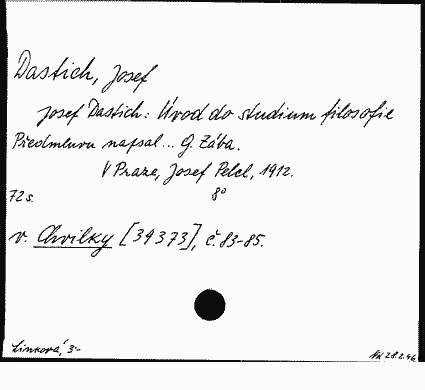 Dastich, Josef
Josef Dastich: Úvod do studium filosofie
Předmluvu napsal... G. Zába.
V Praze, Josef Pelcl, 1912.
72 s. 8°
v. Chvilky [39373], č. 83-85.
Linková, 3-
28.2.46